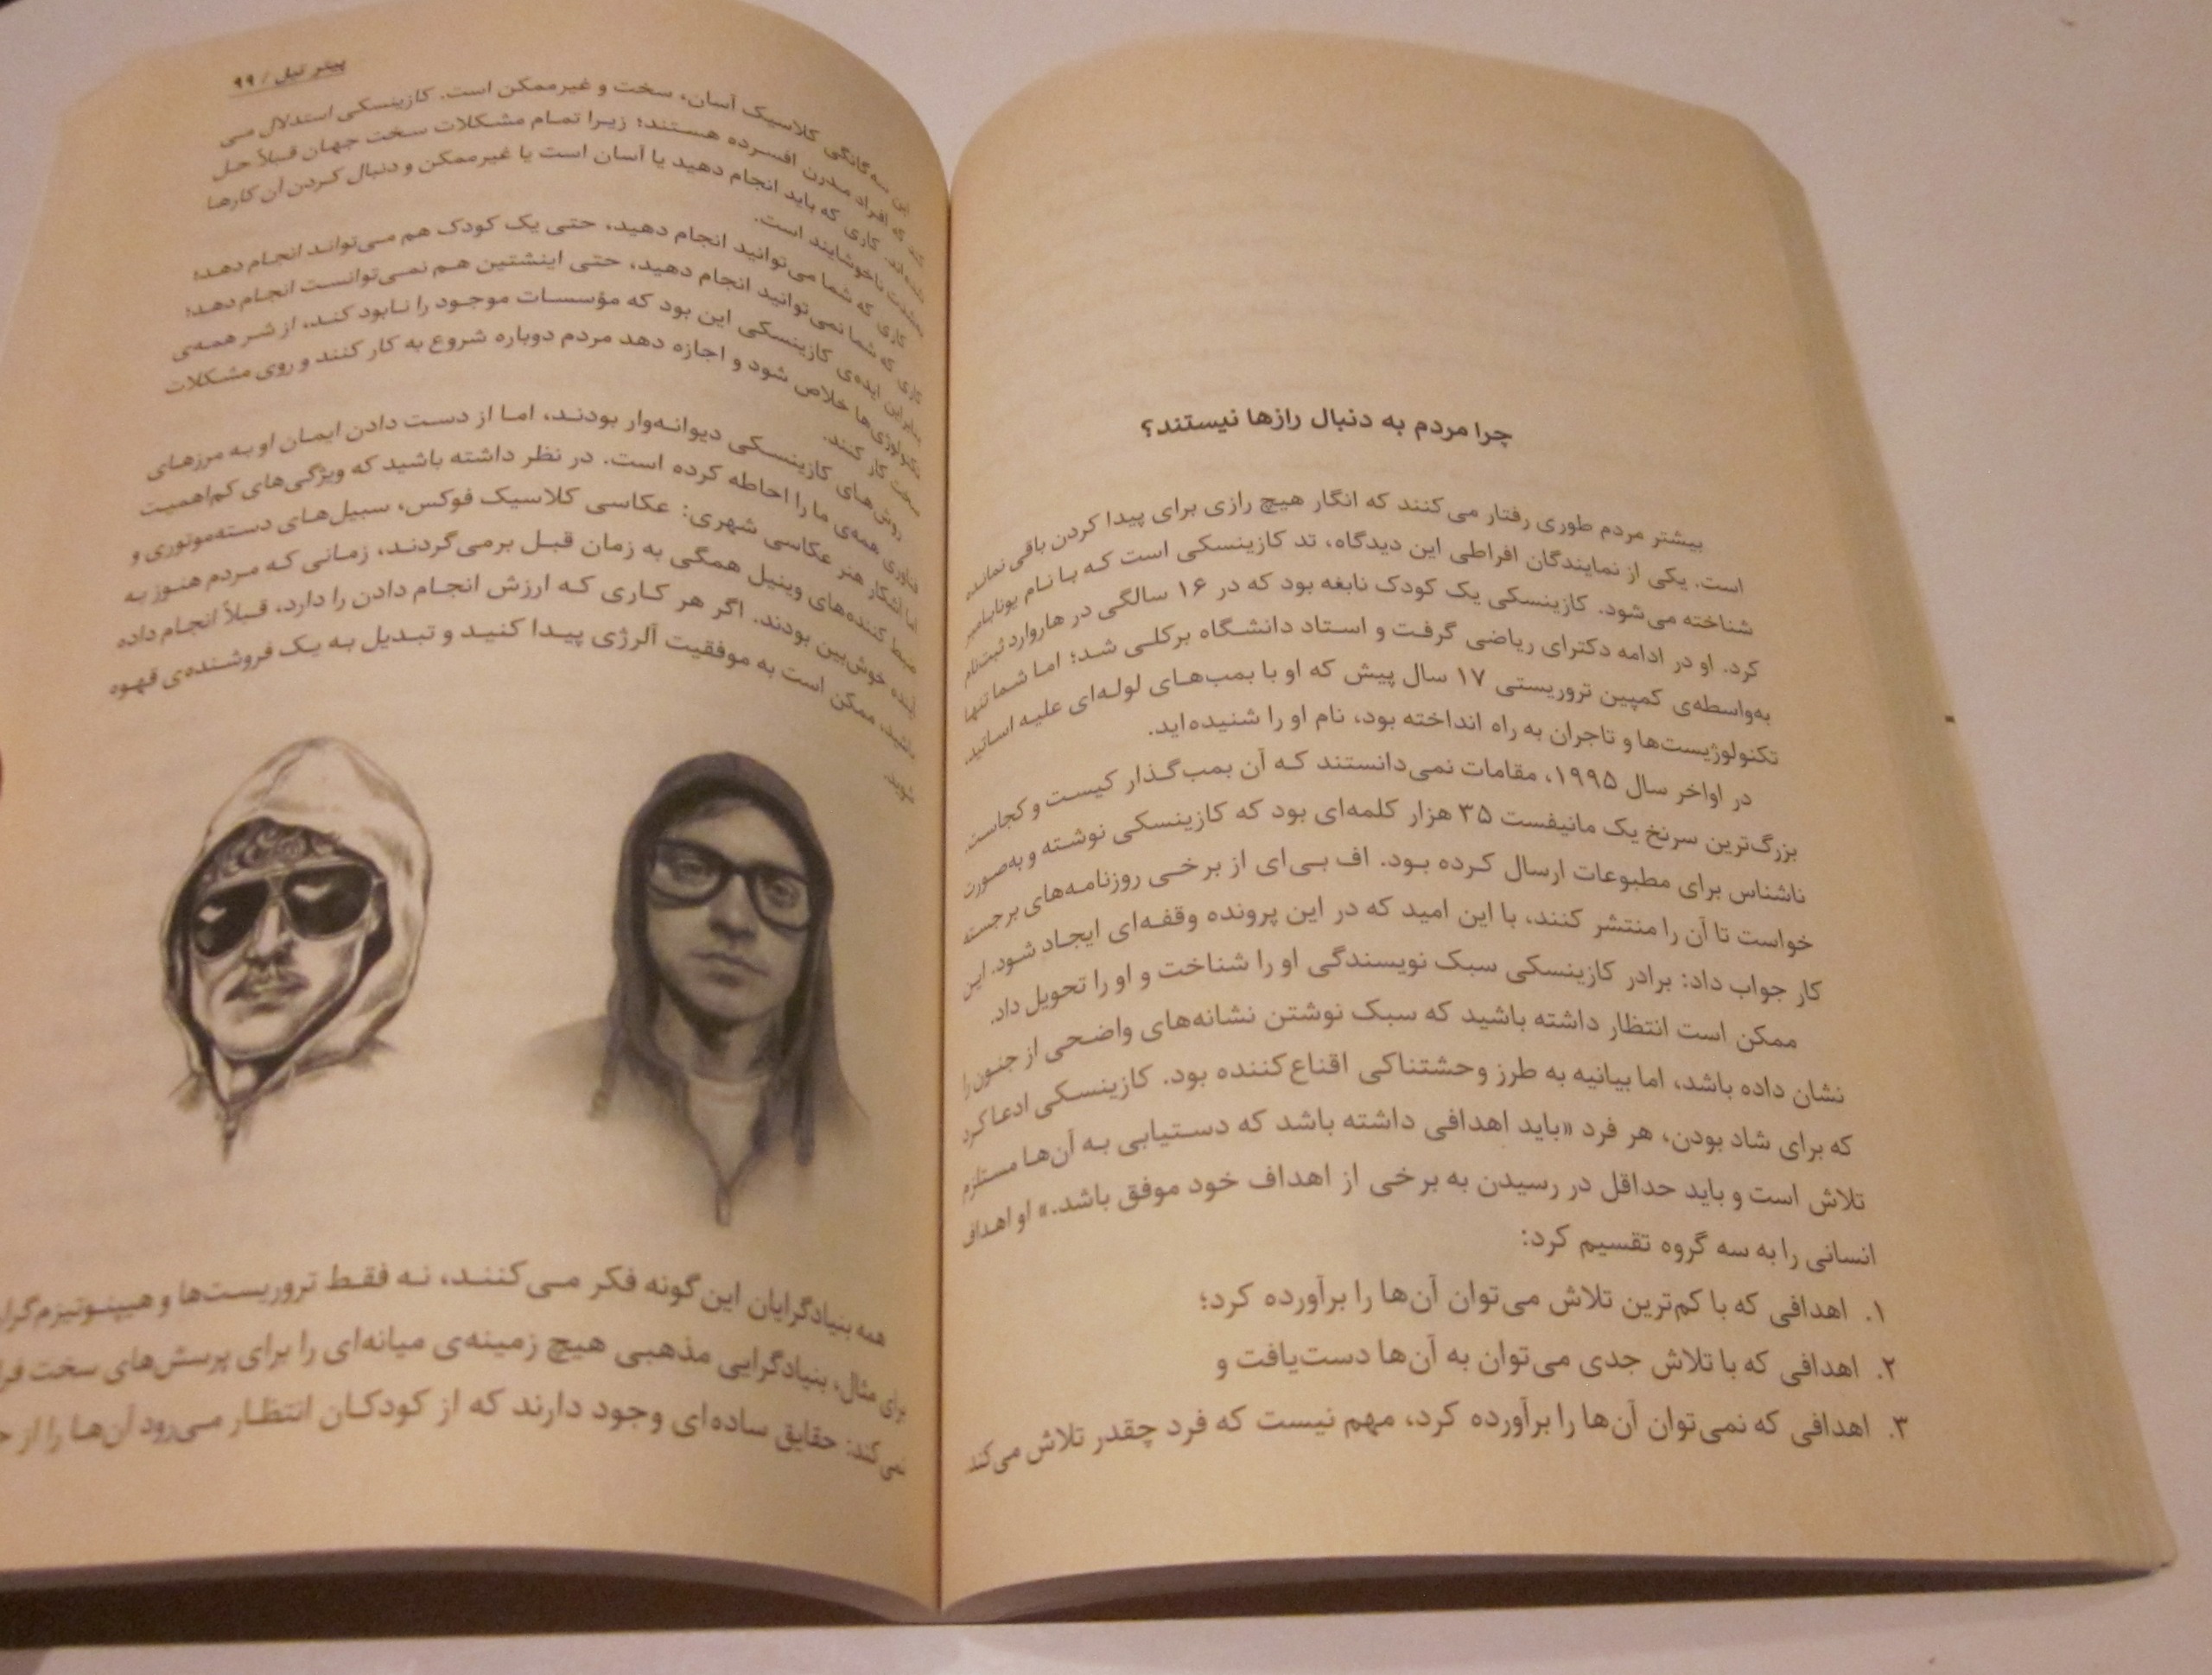 چرا مردم به دنبال رازها نیستند؟
بیشتر مردم طوری رفتار می‌کنند که انگار هیچ رازی برای پیدا کردن باقی نمانده
است. یکی از نمایندگان افراطی این دیدگاه، تد کازینسکی است که با نام یونابامبر
شناخته می‌شود. کازینسکی یک کودک نابغه بود که در ۱۶ سالگی در هاروارد ثبت‌نام
کرد. او در ادامه دکترای ریاضی گرفت و استاد دانشگاه برکلی شد؛ اما شما تنها
به‌واسطه‌ی کمپین تروریستی ۱۷ سال پیش که او با بمب‌های لوله‌ای علیه اساتید،
تکنولوژیست‌ها و تاجران به راه انداخته بود، نام او را شنیده‌اید.
در اواخر سال ۱۹۹۵، مقامات نمی‌دانستند که آن بمب‌گذار کیست و کجاست.
بزرگ‌ترین سرنخ یک مانیفست ۳۵ هزار کلمه‌ای بود که کازینسکی نوشته و به‌صورت
ناشناس برای مطبوعات ارسال کرده بود. اف بی‌ای از برخی روزنامه‌های برجسته
خواست تا آن را منتشر کنند، با این امید که در این پرونده وقفه‌ای ایجاد شود. این
کار جواب داد: برادر کازینسکی سبک نویسندگی او را شناخت و او را تحویل داد.
ممکن است انتظار داشته باشید که سبک نوشتن نشانه‌های واضحی از جنون را
نشان داده باشد، اما بیانیه به طرز وحشتناکی اقناع‌کننده بود. کازینسکی ادعا کرد
که برای شاد بودن، هر فرد «باید اهدافی داشته باشد که دستیابی به آن‌ها مستلزم
تلاش است و باید حداقل در رسیدن به برخی از اهداف خود موفق باشد.» او اهداف
انسانی را به سه گروه تقسیم کرد:
۱. اهدافی که با کم‌ترین تلاش می‌توان آن‌ها را برآورده کرد؛
۲. اهدافی که با تلاش جدی می‌توان به آن‌ها دست‌یافت و
۳. اهدافی که نمی‌توان آن‌ها را برآورده کرد، مهم نیست که فرد چقدر تلاش می‌کند
پیتر تیل / ۹۹
این سه‌گانگی کلاسیک آسان، سخت و غیرممکن است. کازینسکی استدلال می
کند که افراد مدرن افسرده هستند؛ زیرا تمام مشکلات سخت جهان قبلاً حل
شده‌اند. کاری که باید انجام دهید یا آسان است یا غیرممکن و دنبال کردن آن کارها
به‌شدت ناخوشایند است.
کاری که شما می‌توانید انجام دهید، حتی یک کودک هم می‌تواند انجام دهد؛
کاری که شما نمی‌توانید انجام دهید، حتی اینشتین هم نمی‌توانست انجام دهد؛
بنابراین ایده‌ی کازینسکی این بود که مؤسسات موجود را نابود کند، از شر همه‌ی
تکنولوژی‌ها خلاص شود و اجازه دهد مردم دوباره شروع به کار کنند و روی مشکلات
سخت کار کنند.
روش‌های کازینسکی دیوانه‌وار بودند، اما از دست دادن ایمان او به مرزهای
فناوری همه‌ی ما را احاطه کرده است. در نظر داشته باشید که ویژگی‌های کم‌اهمیت
اما آشکار هنر عکاسی شهری: عکاسی کلاسیک فوکس، سبیل‌های دسته‌موتوری و
ضبط کننده‌های وینیل همگی به زمان قبل برمی‌گردند، زمانی که مردم هنوز به
آینده خوش‌بین بودند. اگر هر کاری که ارزش انجام دادن را دارد، قبلاً انجام داده
باشید، ممکن است به موفقیت آلرژی پیدا کنید و تبدیل به یک فروشنده‌ی قهوه
شوید.
همه بنیادگرایان این‌گونه فکر می‌کنند، نه فقط تروریست‌ها و
برای مثال، بنیادگرایی مذهبی هیچ زمینه‌ی میانه‌ای را برای پرسش‌های سخت
نمی‌کند: حقایق ساده‌ای وجود دارند که از کودکان انتظار می‌رود آن‌ها را از